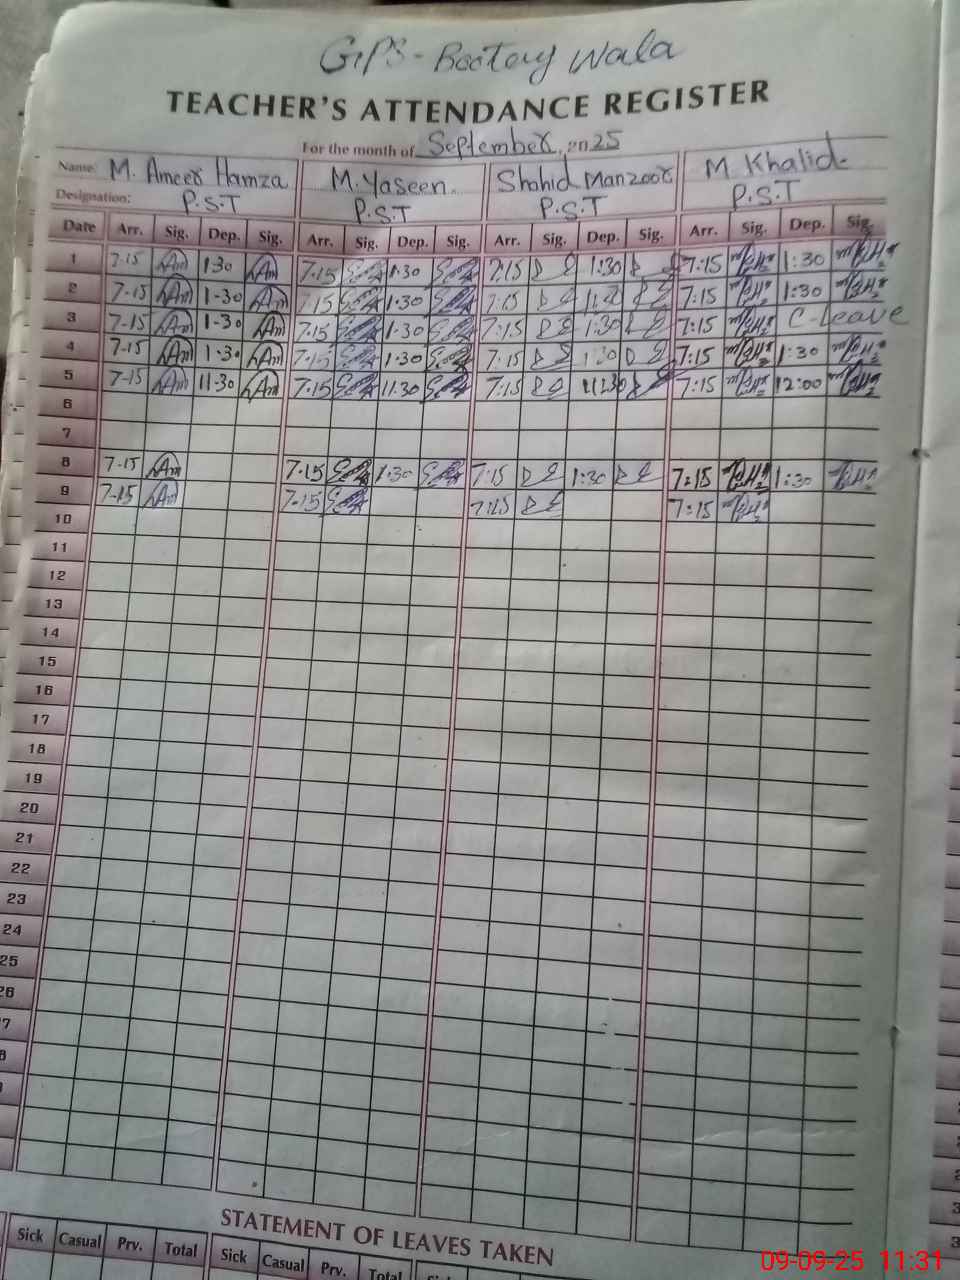 GPS - Bootay Wala
TEACHER'S ATTENDANCE REGISTER
For the month of September, 2025
Name: M. Ameer Hamza M. Yaseen. Shahid Manzoor M. Khalid
Designation: P.S.T P.S.T P.S.T P.S.T
Date Arr. Sig. Dep. Sig. Arr. Sig. Dep. Sig. Arr. Sig. Dep. Sig. Arr. Sig. Dep. Sig.
1 7-15 1:30 7:15 1:30 7:15 1:30 7:15 1:30
2 7-15 1-30 7:15 1:30 7:15 7:15 1:30
3 7-15 1-30 7:15 1:30 7:15 1:30 7:15 C-Leave
4 7-15 1.30 7:15 1:30 7:15 1:30 7:15 1:30
5 7-15 11-30 7:15 11:30 7:15 11:30 7:15 12:00
6
7
8 7-15 7.15 1:30 7:15 1:30 7:15 1:30
9 7-15 7-15 7:15 7:15
10
11
12
13
14
15
16
17
18
19
20
21
22
23
24
25
26
STATEMENT OF LEAVES TAKEN
Sick Casual Prv. Total Sick Casual Prv. Total
09-09-25 11:31